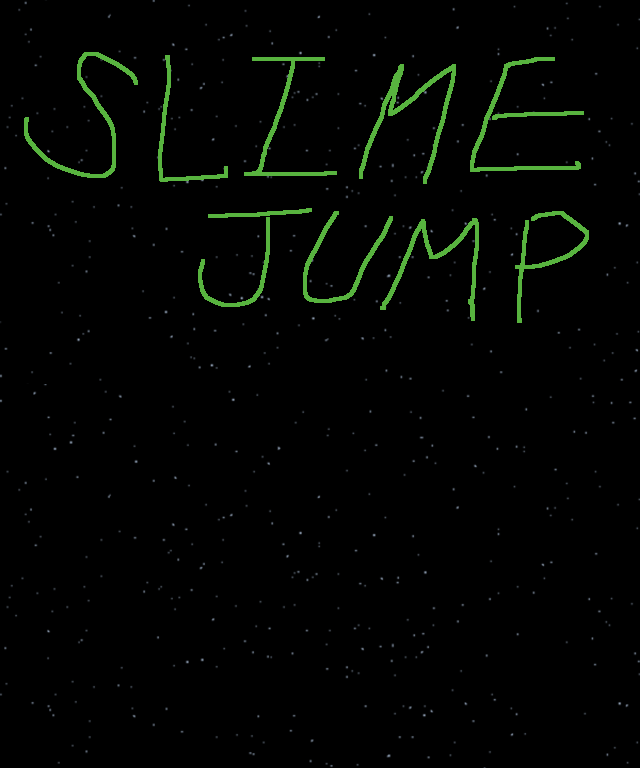 SLIME
JUMP